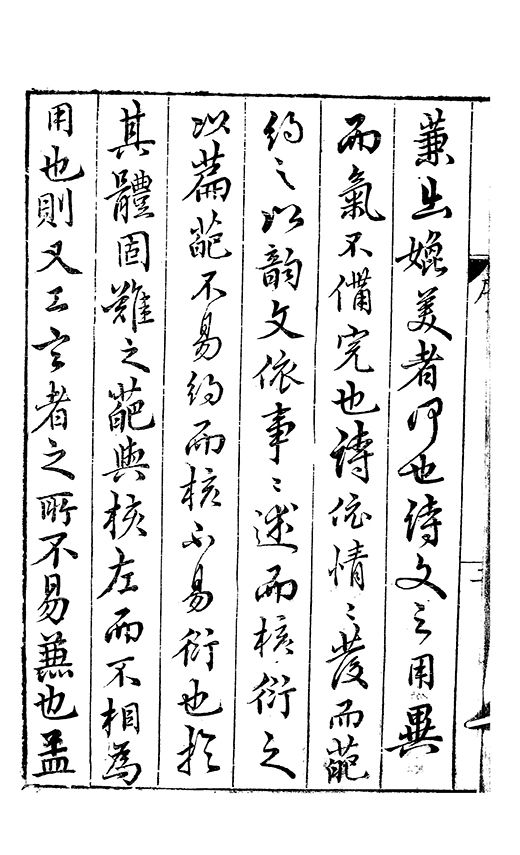 蕪出媲美者何也詩文之用異
而氣不備完也詩依情〻發而葩
約之以韻文依事〻述而核衍之
以篇葩不易約而核不易衍也於
其體固難之葩與核左而不相為
用也則又工言者之所不易蕪也盖
序